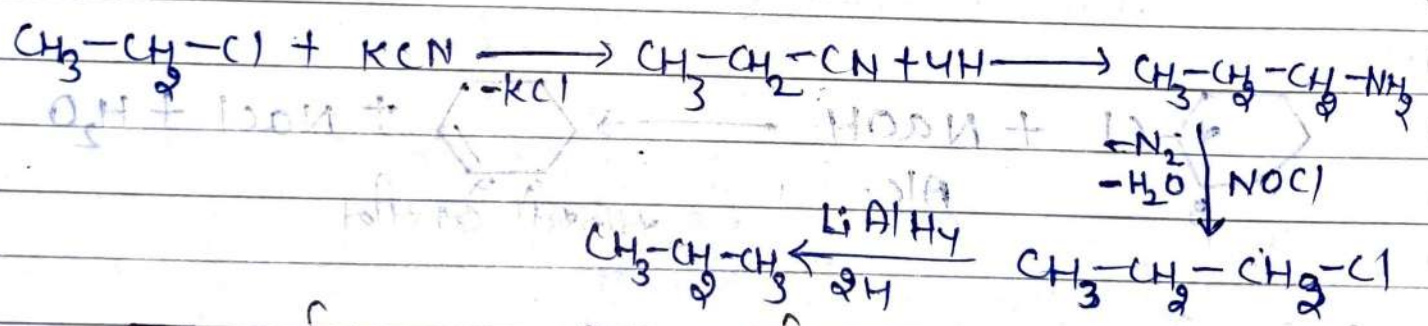 CH₃-CH₂-Cl + KCN → CH₃-CH₂-CN + 4H → CH₃-CH₂-CH₂-NH₂
-KCl
-N₂
-H₂O NOCl
CH₃-CH₂-CH₃ ← LiAlH₄ 2H CH₃-CH₂-CH₂-Cl